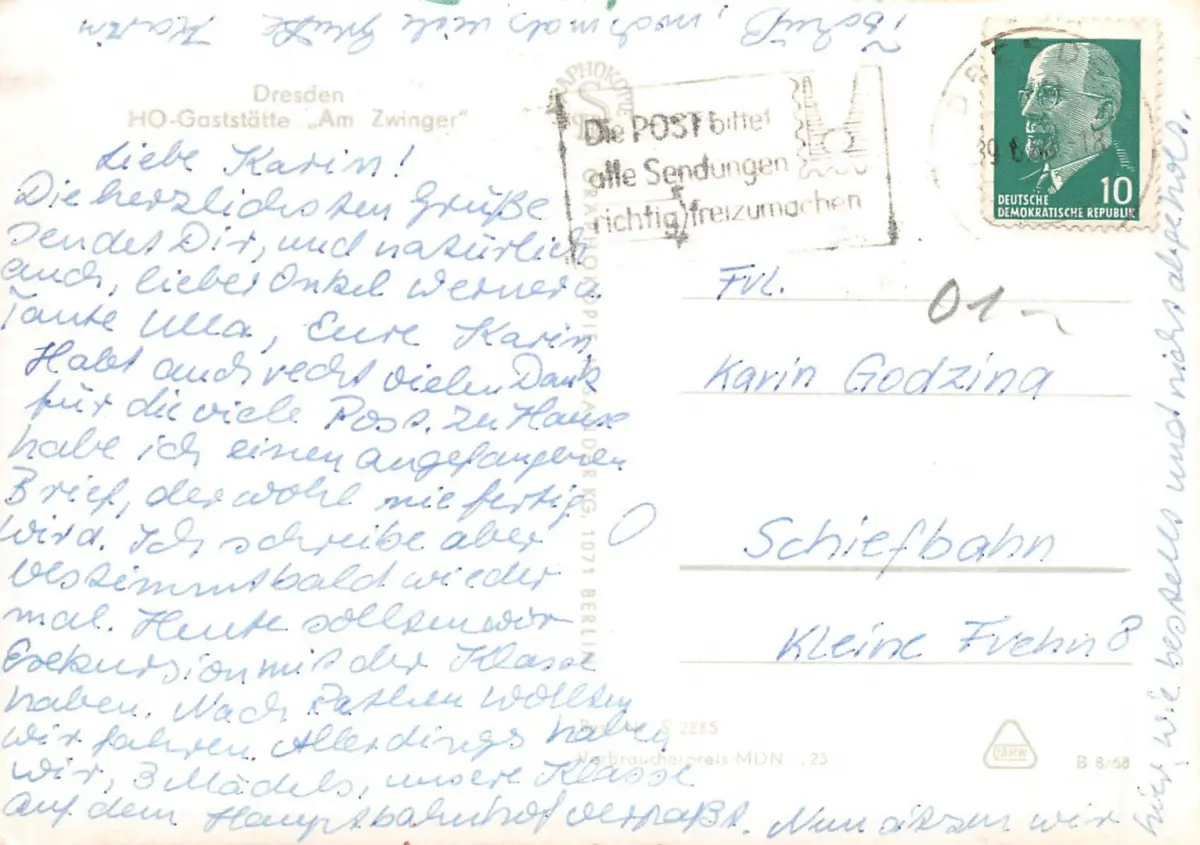 Dresden
HO-Gaststätte „Am Zwinger"
Liebe Karin!
Die herzlichsten Grüße
sendet Dir, und natürlich
auch, lieber Onkel Werner u.
Tante Ulla, Eure Karin.
Habt auch recht vielen Dank
für die viele Post. Zu Hause
habe ich einen angefangenen
Brief, der wohl nie fertig
wird. Ich schreibe aber
bestimmt bald wieder
mal. Heute sollten wir
Exkursion mit der Klasse
haben. Nach Rathen wollten
wir fahren. Allerdings haben
wir, 3 Mädels, unsere Klasse
auf dem Hauptbahnhof verpaßt. Nun sitzen wir
hier, wie bestellt und nicht abgeholt.
Tschüß, nochmals viele Grüße Karin
Die POST bittet
alle Sendungen
richtig freizumachen
DEUTSCHE
DEMOKRATISCHE REPUBLIK
10
Frl.
01
Karin Godzina
Schiefbahn
Kleine Frehn 8
1071 BERLIN
S 2885
Verbraucherpreis MDN -,23
B 8/68